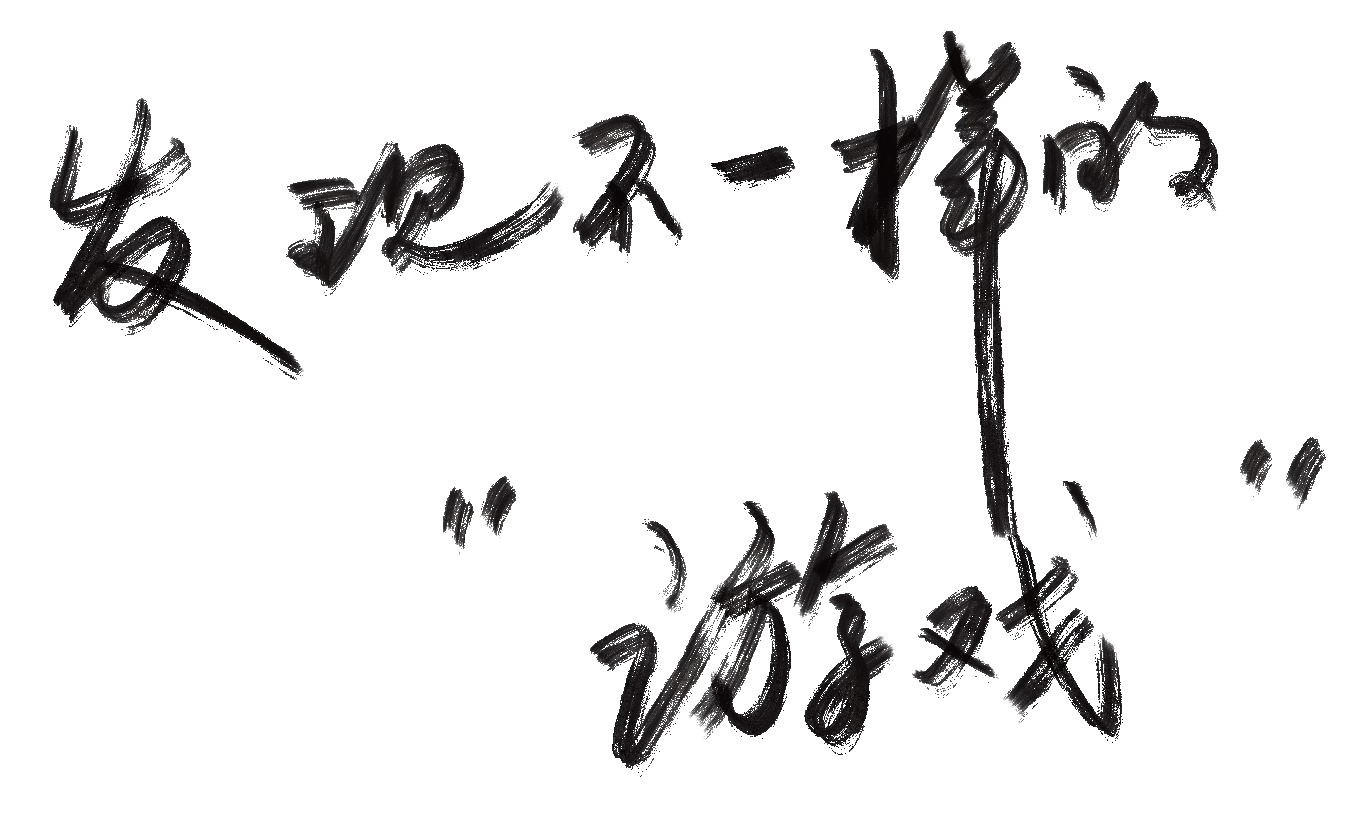 发现不一样的
"游戏"